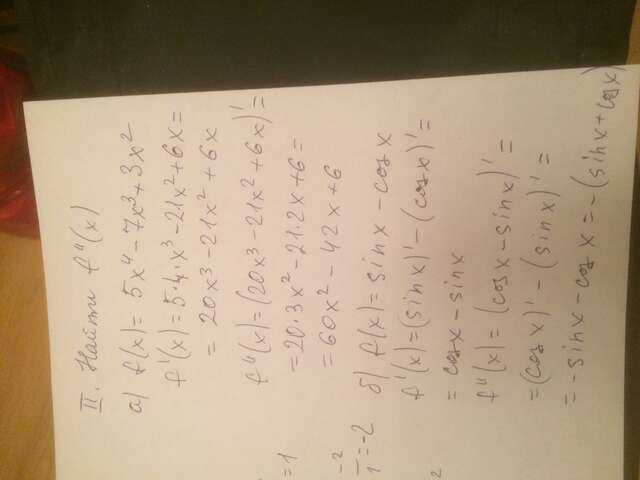 II. Найти f''(x)
а) f(x) = 5x⁴ - 7x³ + 3x²
f'(x) = 5·4·x³ - 21x² + 6x =
= 20x³ - 21x² + 6x
f''(x) = (20x³ - 21x² + 6x)' =
= 20·3x² - 21·2x + 6 =
= 60x² - 42x + 6
= 1
-2
/1 = -2
2
б) f(x) = sinx - cosx
f'(x) = (sinx)' - (cosx)' =
= cosx - sinx
f''(x) = (cosx - sinx)' =
= (cosx)' - (sinx)' =
= -sinx - cosx = -(sinx + cosx)